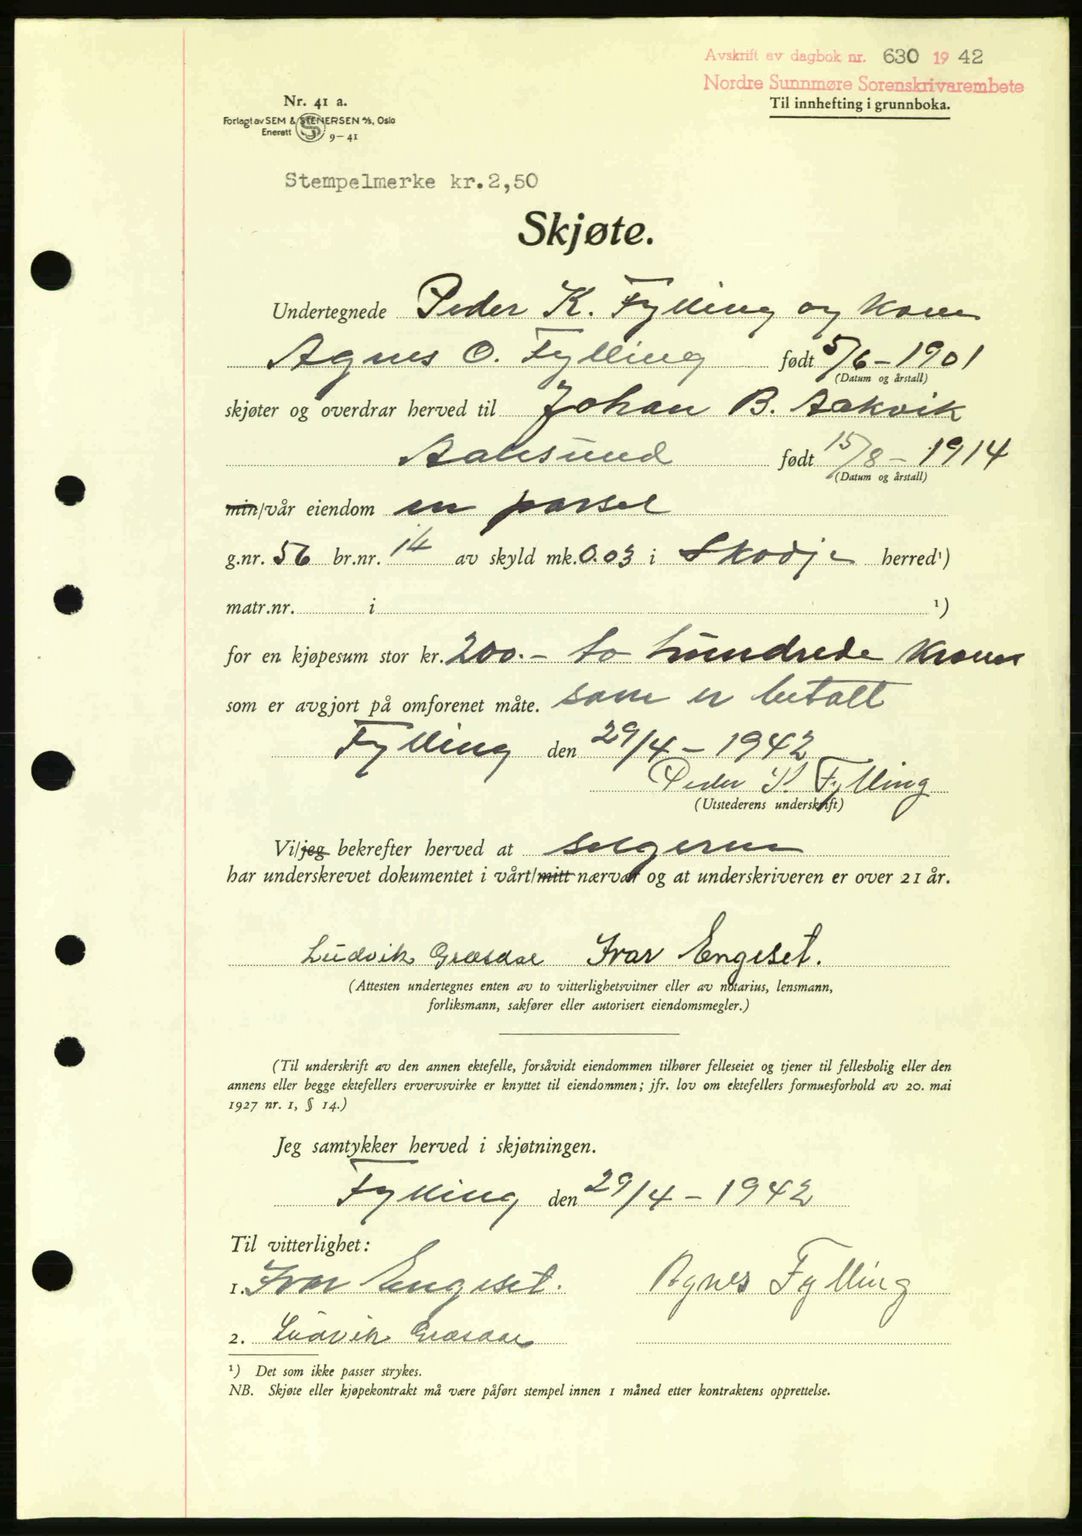 Avskrift av dagbok nr. 630 19 42
Nordre Sunnmøre Sorenskrivarembete
Til innhefting i grunnboka.
Nr. 41 a.
Forlagt av SEM & STENERSEN A/S, Oslo
Enerett S 9-41
Stempelmerke kr.2,50
Skjøte.
Undertegnede Peder K. Fylling og Kone
Agnes O. Fylling født 5/6 - 1901
(Datum og årstall)
skjøter og overdrar herved til Johan B. Aakvik
Aalesund født 15/8 - 1914
(Datum og årstall)
min/vår eiendom en parsel
g.nr. 56 br.nr. 14 av skyld mk. 0.03 i Skodje herred¹)
matr.nr. i ¹)
for en kjøpesum stor kr. 200.- to hundrede Kroner
som er avgjort på omforenet måte. som er betalt
Fylling den 29/4 - 1942
Peder K. Fylling
(Utstederens underskrift)
Vi/jeg bekrefter herved at selgerne
har underskrevet dokumentet i vårt/mitt nærvær og at underskriveren er over 21 år.
Ludvik Græsdal Ivar Engeset.
(Attesten undertegnes enten av to vitterlighetsvitner eller av notarius, lensmann,
forliksmann, sakfører eller autorisert eiendomsmegler.)
(Til underskrift av den annen ektefelle, forsåvidt eiendommen tilhører felleseiet og tjener til fellesbolig eller den
annens eller begge ektefellers ervervsvirke er knyttet til eiendommen; jfr. lov om ektefellers formuesforhold av 20. mai
1927 nr. 1, § 14.)
Jeg samtykker herved i skjøtningen.
Fylling den 29/4 - 1942
Til vitterlighet:
1. Ivar Engeset. Agnes Fylling
2. Ludvik Græsdal
¹) Det som ikke passer strykes.
NB. Skjøte eller kjøpekontrakt må være påført stempel innen 1 måned etter kontraktens opprettelse.